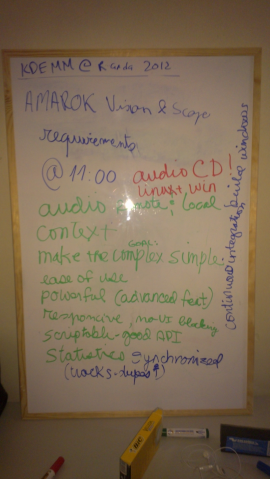 KDEMM @ Randa 2012
AMAROK Vision & Scope
requirements
@ 11:00 audio CD!
linux+, win
audio remote; local
context
goals:
make the complex simple
ease of use
powerful (advanced feat)
responsive, no-UI blocking
scriptable-good API
Statistics synchronized
continuous integration build windows